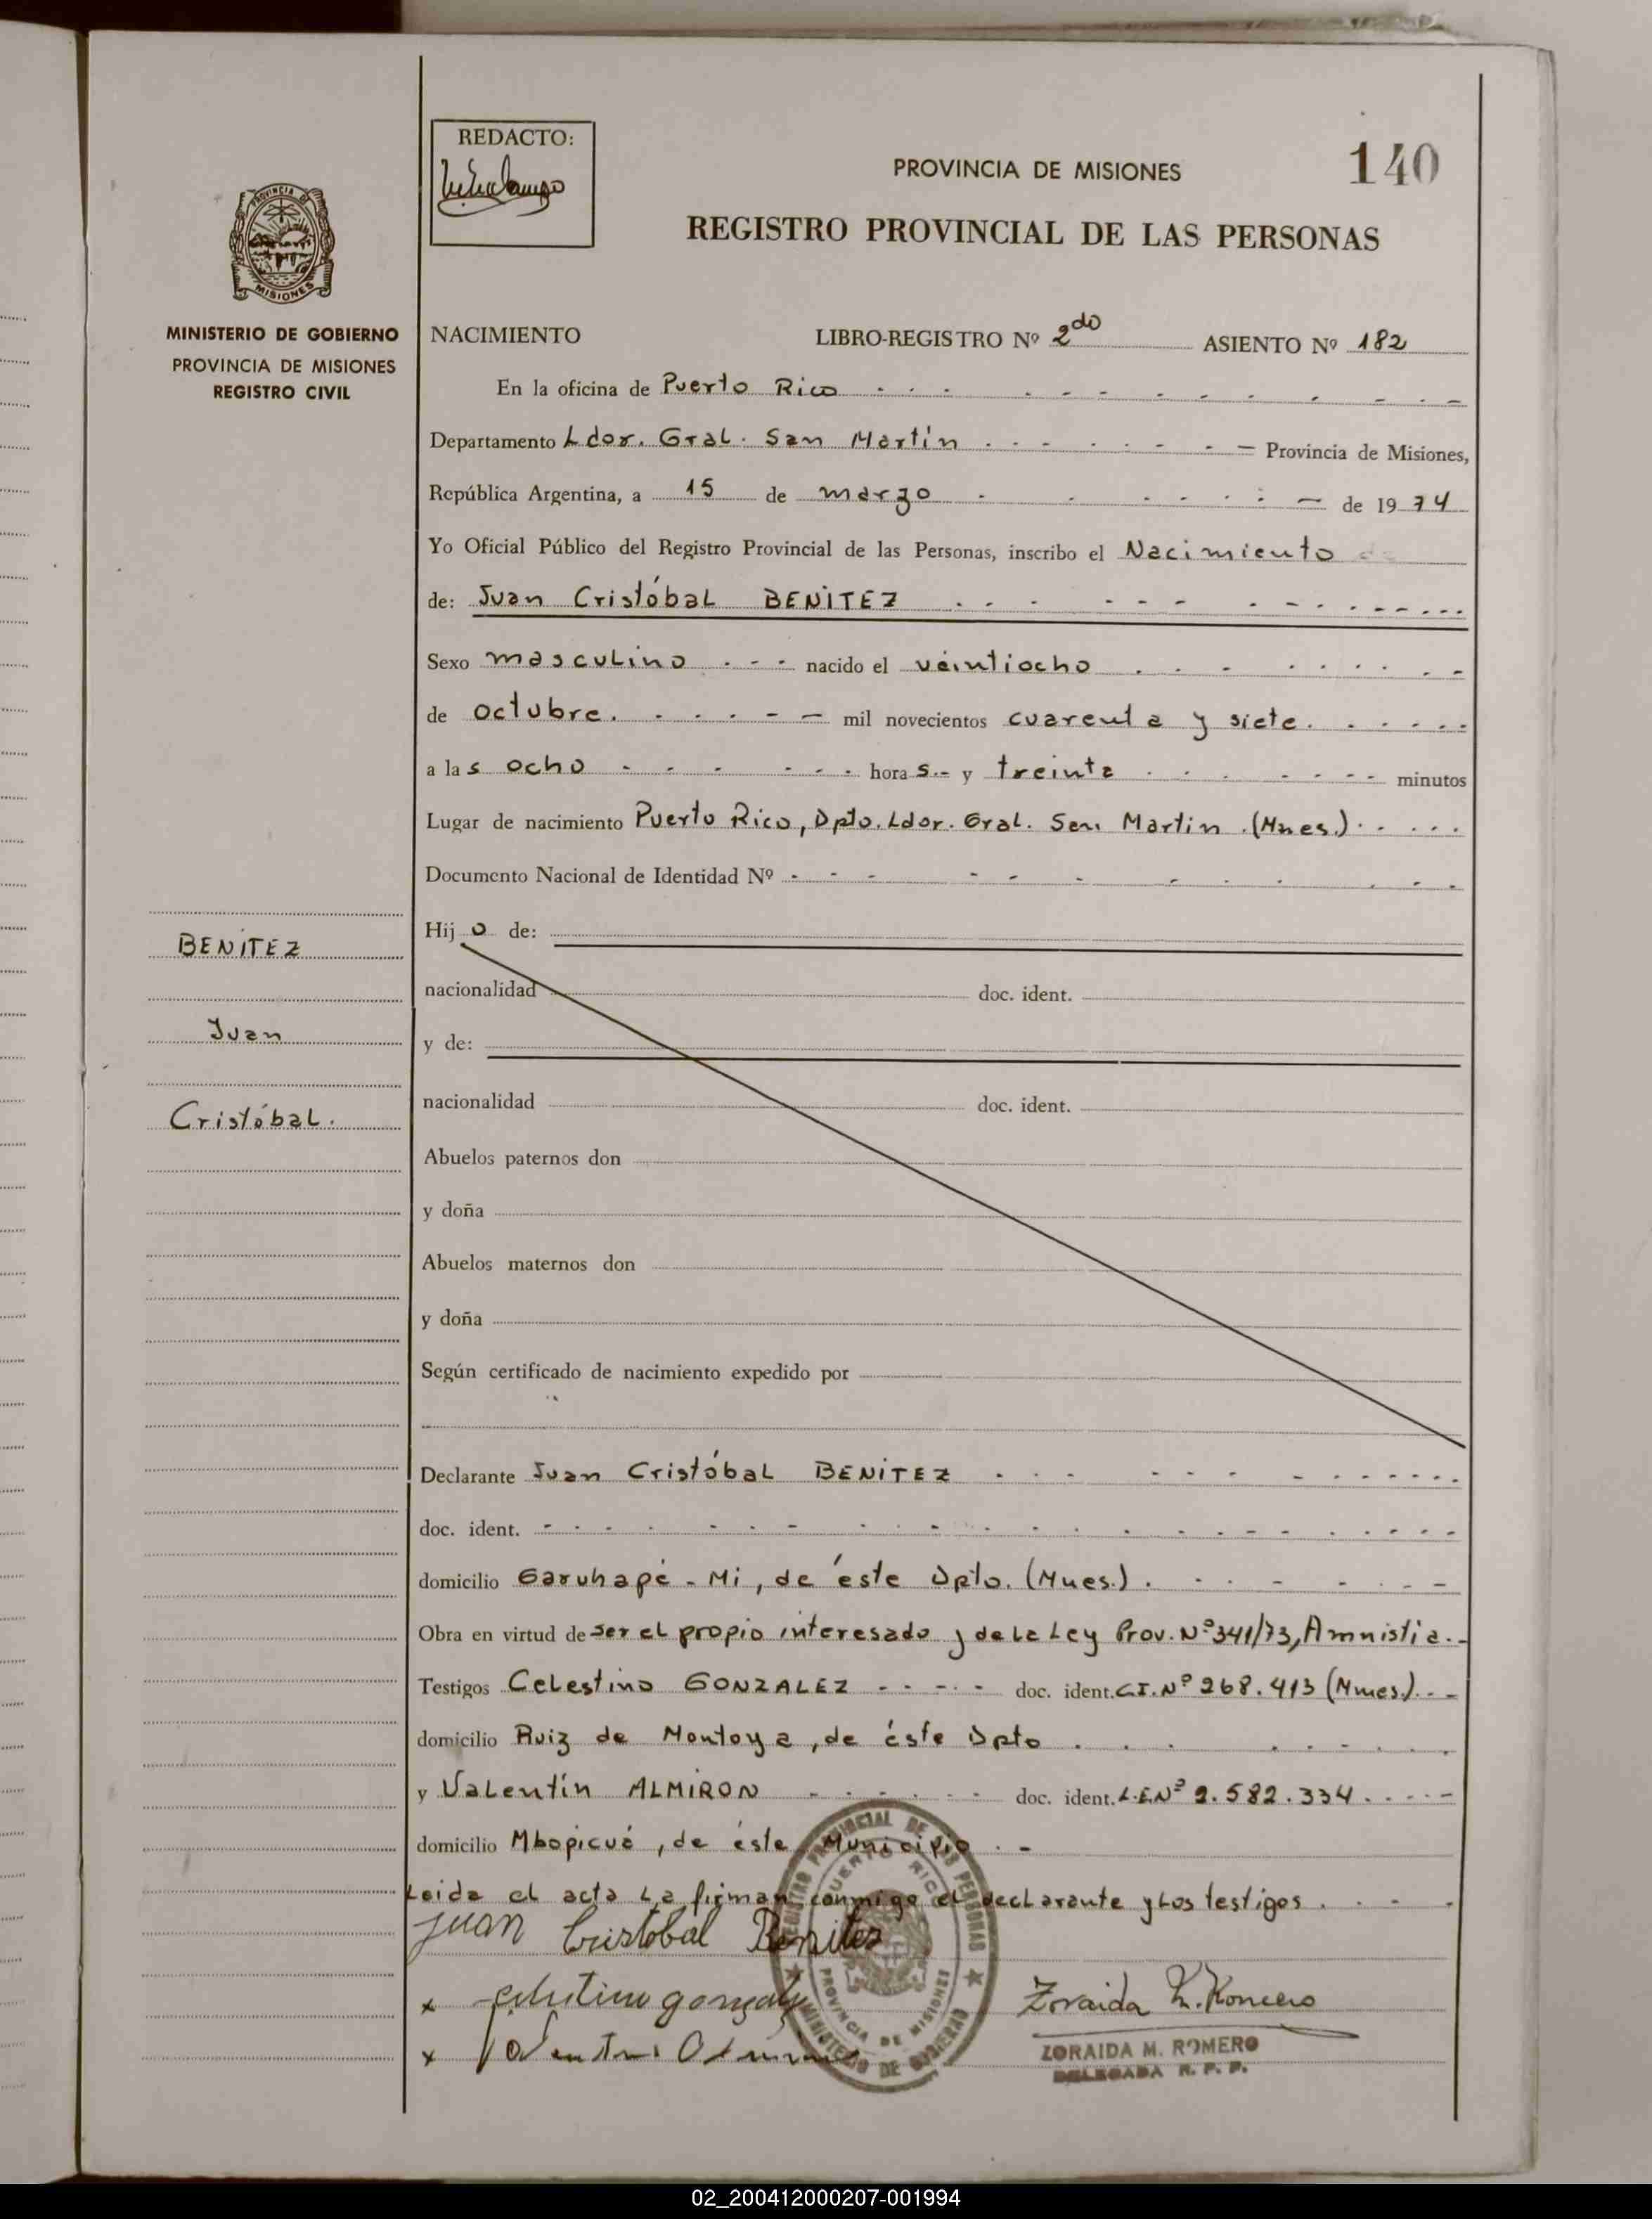 REDACTO:
PROVINCIA DE MISIONES
140
REGISTRO PROVINCIAL DE LAS PERSONAS
PROVINCIA DE
MISIONES
MINISTERIO DE GOBIERNO
PROVINCIA DE MISIONES
REGISTRO CIVIL
NACIMIENTO LIBRO-REGISTRO Nº 2do ASIENTO Nº 182
En la oficina de Puerto Rico
Departamento Ldor. Gral. San Martín Provincia de Misiones,
República Argentina, a 15 de marzo de 1974
Yo Oficial Público del Registro Provincial de las Personas, inscribo el Nacimiento
de: Juan Cristóbal BENITEZ
Sexo masculino nacido el veintiocho
de octubre. mil novecientos cuarenta y siete.
a las ocho horas.- y treinta minutos
Lugar de nacimiento Puerto Rico, Dpto. Ldor. Gral. San Martin (Mnes.)
Documento Nacional de Identidad Nº
Hijo de:
BENITEZ
nacionalidad doc. ident.
Juan
y de:
nacionalidad doc. ident.
Cristóbal.
Abuelos paternos don
y doña
Abuelos maternos don
y doña
Según certificado de nacimiento expedido por
Declarante Juan Cristóbal BENITEZ
doc. ident.
domicilio Garuhapé - Mi, de éste Dpto. (Mnes.).
Obra en virtud de ser el propio interesado y de la Ley Prov. Nº 341/73, Amnistia.-
Testigos Celestino GONZALEZ doc. ident. C.I. Nº 268.413 (Mnes.).
domicilio Ruiz de Montoya, de éste Dpto
y Valentín ALMIRON doc. ident. L.E. Nº 2.582.334.
domicilio Mbopicuá, de éste Municipio.
Leida el acta la firman conmigo el declarante y los testigos.
Juan Cristobal Benitez
REGISTRO PROVINCIAL DE LAS PERSONAS
PUERTO RICO
PROVINCIA DE MISIONES
MINISTERIO DE GOBIERNO
Zoraida M. Romero
ZORAIDA M. ROMERO
DELEGADA R. P. P.
02_200412000207-001994